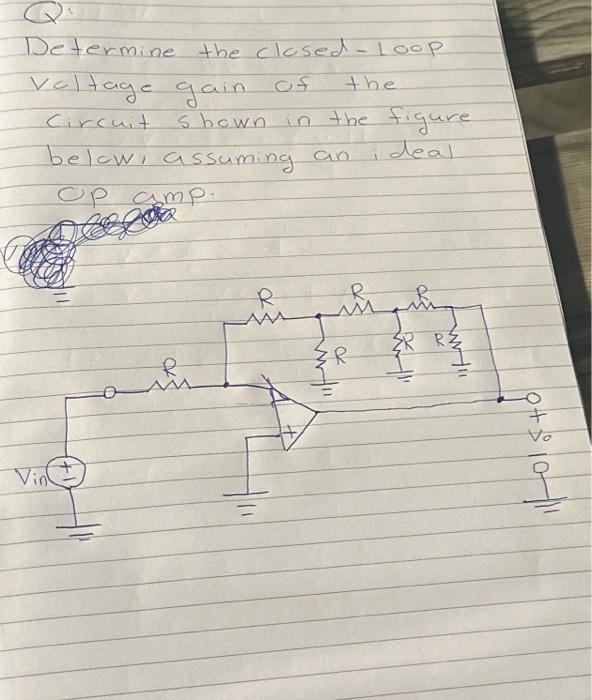 Q:
Determine the closed-Loop
Voltage gain of the
Circuit shown in the figure
below, assuming an ideal
Op amp.
R
R
R
R
R
R
R
+
Vin
+
-
+
Vo
-